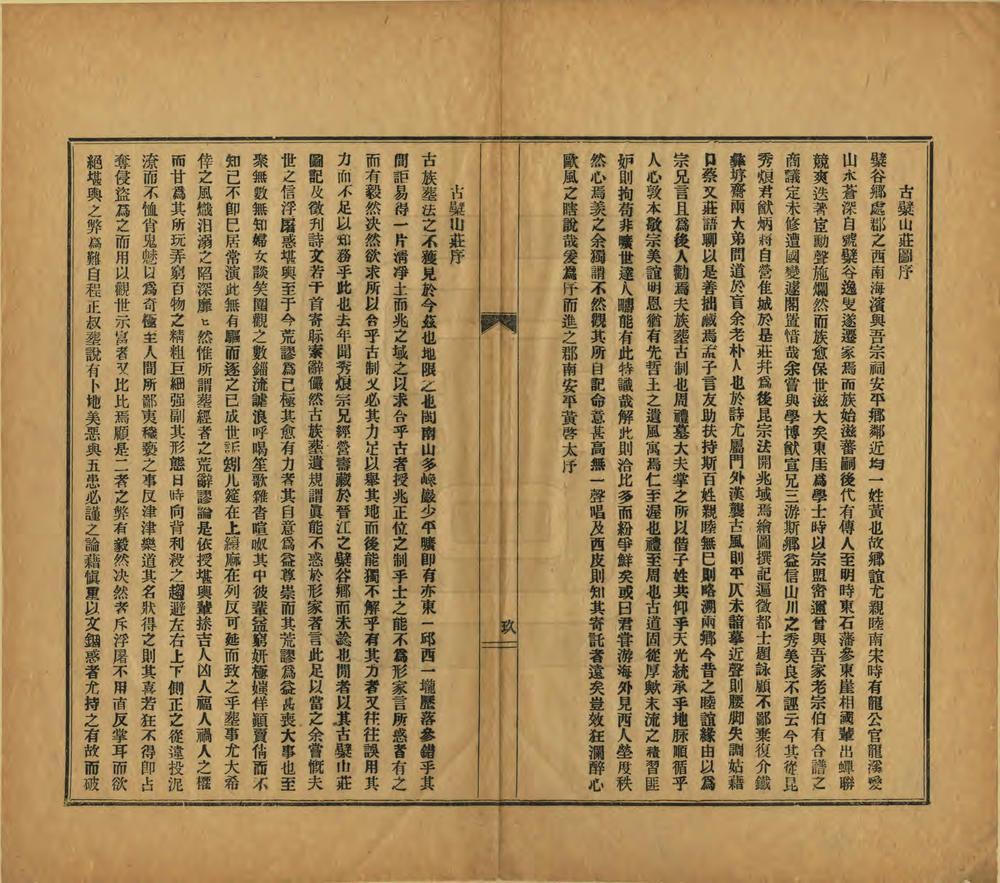 古檗山莊圖序
檗谷鄉處郡之西南海濱與吾宗祠安平鄉鄰近均一姓黃也故鄉誼尤親睦南宋時有龍公官龍溪愛
山水蒼深自號檗谷逸叟遂遷家焉而族始滋蕃嗣後代有傳人至明時東石藩參東崖相國輩出蟬聯
競爽迭著宦勳聲施爛然而族愈保世滋大矣東厓為學士時以宗盟密邇曾與吾家老宗伯有合譜之
商議定未修遭國變遽閣置惜哉余嘗與學博猷宣兄三游斯鄉益信山川之秀美良不誣云今其從昆
秀烺君猷炳將自營隹城於是莊并為後昆宗法開兆域焉繪圖撰記遍徵都士題詠顧不鄙棄復介鐵
彝 齋兩大弟問道於盲余老朴人也於詩尤屬門外漢襲古風則平仄未諳摹近聲則腰脚失調姑藉
口祭文莊語聊以是善拙藏焉孟子言友助扶持斯百姓親睦無已則略溯兩鄉今昔之睦誼緣由以為
宗兄言且為後人勸焉夫族葬古制也周禮墓大夫掌之所以偕子姓共仰乎天光統承乎地脉順循乎
人心敦本敬宗美誼明恩猶有先哲王之遺風寓焉仁至渥也禮至周也古道固從厚歟末流之積習匪
妒則拘苟非曠世達人疇能有此特識哉解此則洽比多而紛爭鮮矣或曰君嘗游海外見西人塋度秩
然心焉羨之余獨謂不然觀其所自記命意甚高無一聲唱及西皮則知其寄託者遠矣豈效狂瀾醉心
歐風之瞎說哉爰為序而進之郡南安平黃啓太序
玖
古檗山莊序
古族葬法之不獲見於今茲也地限之也閩南山多嶸巖少平曠即有亦東一邱西一壠歷落參錯乎其
間詎易得一片清凈土而兆之域之以求合乎古者授兆正位之制乎士之能不為形家言所惑者有之
而有毅然決然欲求所以合乎古制又必其力足以舉其地而後能獨不解乎有其力者又往往誤用其
力而不足以知務乎此也去年聞秀烺宗兄經營壽藏於晉江之檗谷鄉而未諗也間者以其古檗山莊
圖記及徵刊詩文若干首寄眎索辭儼然古族葬遺規謂眞能不惑於形家者言此足以當之余嘗慨夫
世之信浮屠惑堪輿至于今荒謬為已極其愈有力者其自意為益尊崇而其荒謬為益甚喪大事也至
聚無數無知婦女談笑圍觀之數錙流謔浪呼喝笙歌雜沓喧呶其中彼輩益窮妍極媸佯顚賣俏而不
知已不卹巳居常演此無有驅而逐之已成世 矧几筵在上縗麻在列反可延而致之乎葬事尤大希
倖之風熾汨溺之陷深靡匕然惟所謂葬經者之荒辭謬論是依授堪輿輩操吉人凶人福人禍人之權
而甘為其所玩弄窮百物之精粗巨細强副其形態日時向背利殺之趨避左右上下側正之從違投泥
潦而不恤肯鬼魅以為奇極主人間所鄙夷穢褻之事反津津樂道其名狀得之則其喜若狂不得卽占
奪侵盜為之而用以觀世示富者又比比焉顧是二者之弊有毅然决然者斥浮屠不用直反掌耳而欲
絕堪輿之弊為難自程正叔葬說有卜地美惡與五患必謹之論藉愼重以文錮惑者尤持之有故而破